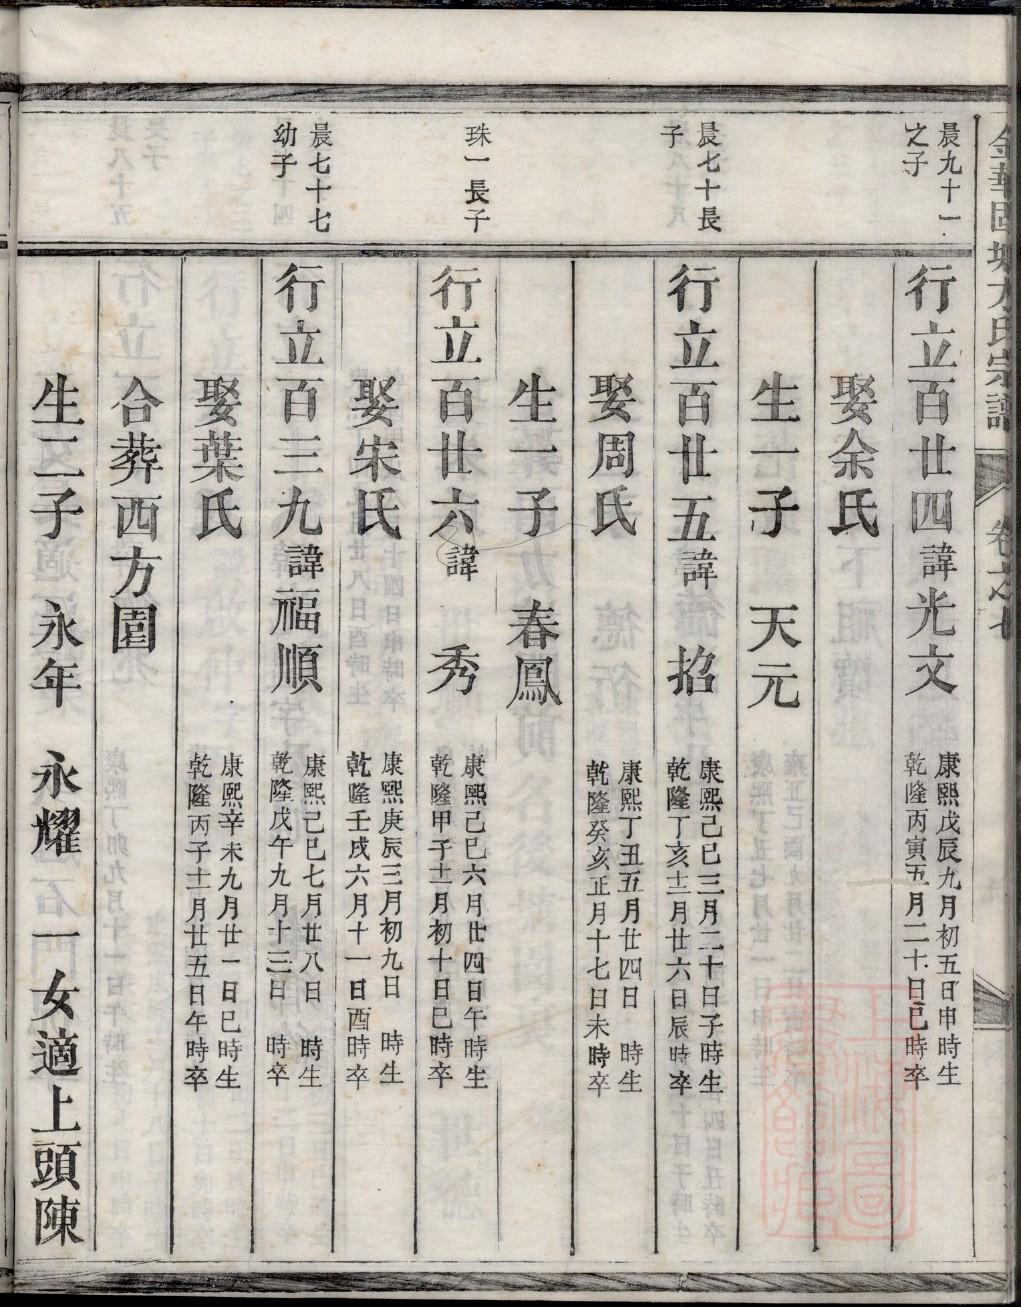 金華固塘方氏宗譜 卷之七
晨九十一
之子
行立百廿四諱光文
康熙戊辰九月初五日申時生
乾隆丙寅五月二十日巳時卒
娶余氏
生一子 天元
晨七十長
子
行立百廿五諱招
康熙己巳三月二十日子時生
乾隆丁亥十二月廿六日辰時卒
娶周氏
康熙丁丑五月廿四日 時生
乾隆癸亥正月十七日未時卒
生一子 春鳳
珠一長子
行立百廿六諱 秀
康熙己巳六月廿四日午時生
乾隆甲子十二月初十日巳時卒
娶宋氏
康熙庚辰三月初九日 時生
乾隆壬戌六月十一日酉時卒
晨七十七
幼子
行立百三九諱福順
康熙己巳七月廿八日 時生
乾隆戊午九月十三日 時卒
娶葉氏
康熙辛未九月廿一日巳時生
乾隆丙子十一月廿五日午時卒
合葬西方園
生二子 永年 永耀 一女適上頭陳